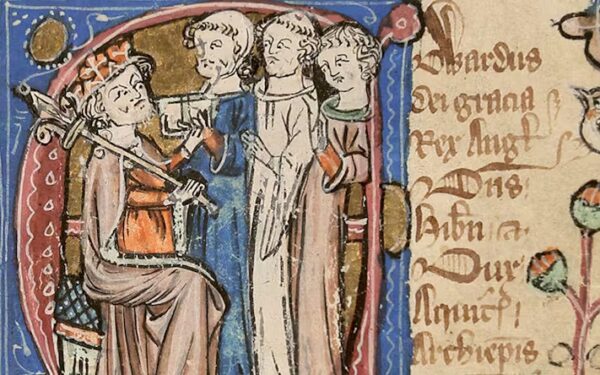 Edwardus
dei gracia
Rex Angl
Dns
Hibn ca
Dux
Aquit
Archiepis